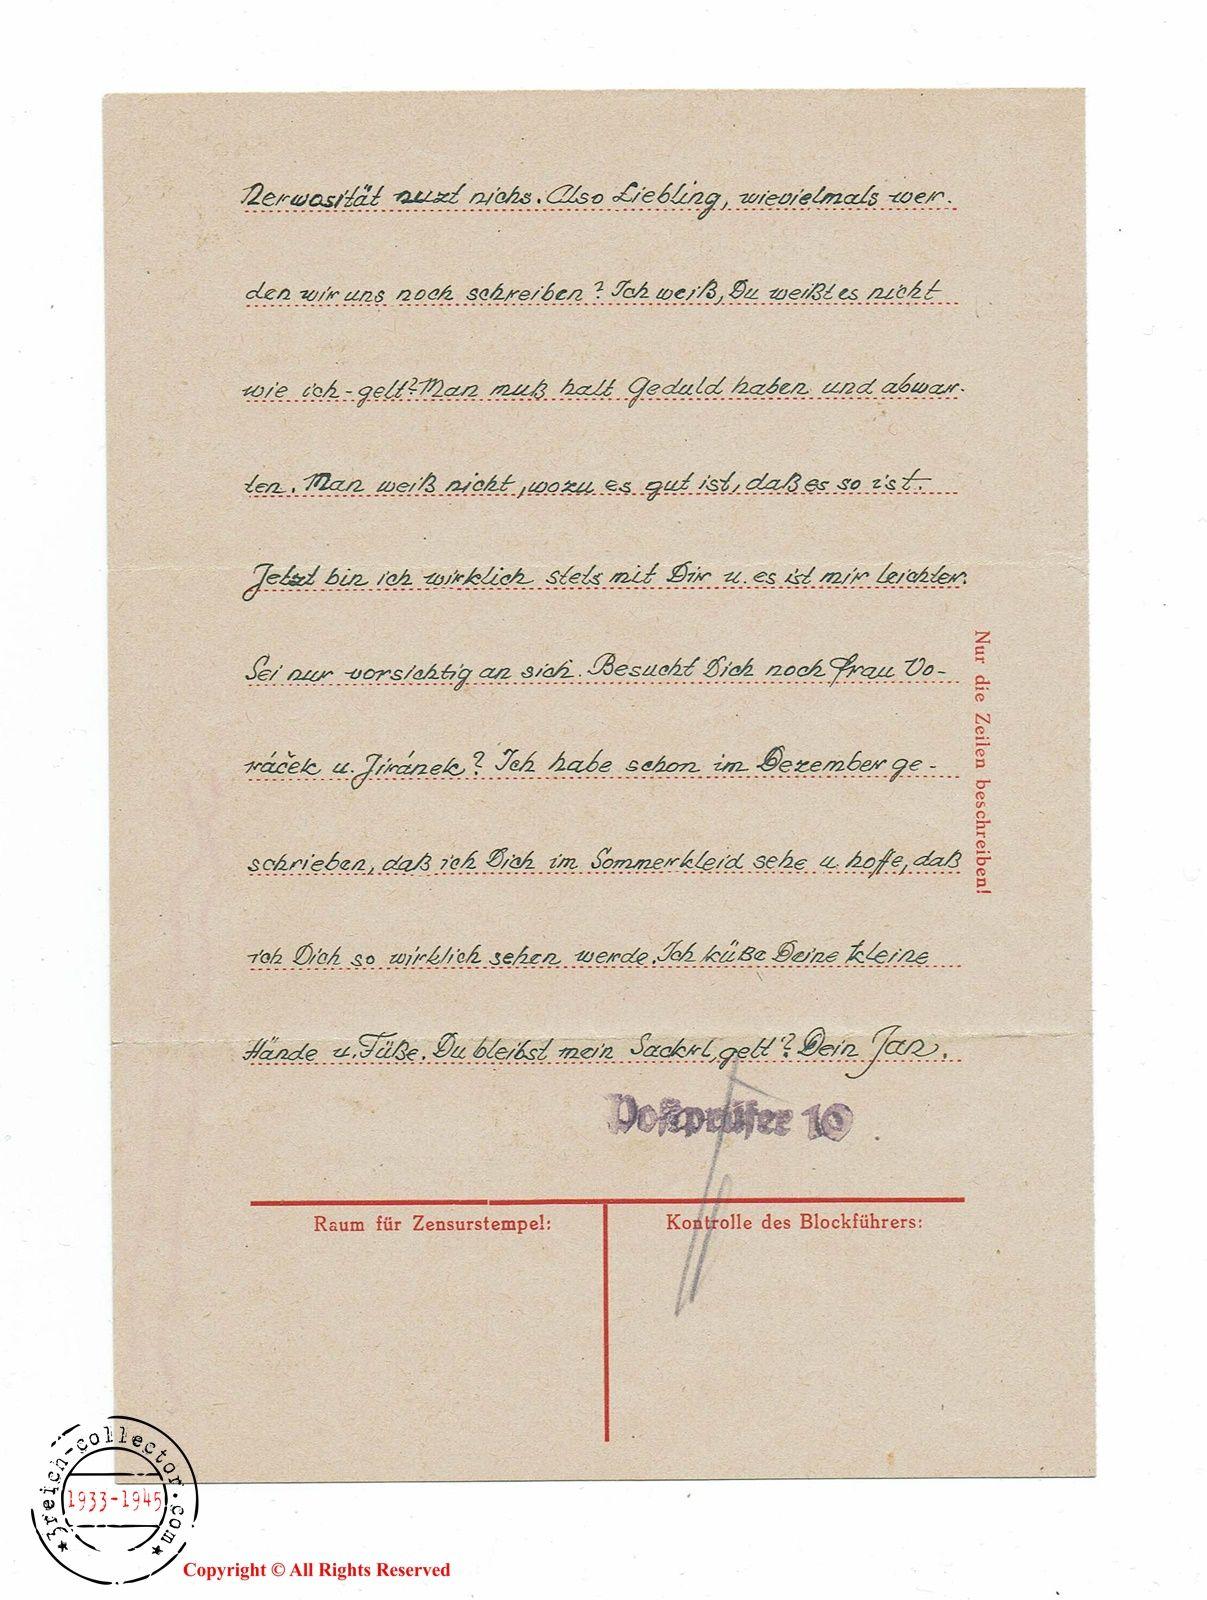 Nerwosität nuzt nichs. Also Liebling, wievielmals wer-
den wir uns noch schreiben? Ich weiß, Du weißt es nicht
wie ich - gelt? Man muß halt Geduld haben und abwar-
ten. Man weiß nicht, wozu es gut ist, daß es so ist.
Jetzt bin ich wirklich stets mit Dir u. es ist mir leichter.
Sei nur vorsichtig an sich. Besucht Dich noch Frau Vo-
ráček u. Jiránek? Ich habe schon im Dezember ge-
schrieben, daß ich Dich im Sommerkleid sehe u. hoffe, daß
ich Dich so wirklich sehen werde. Ich küße Deine kleine
Hände u. Füße. Du bleibst mein Sackrl, gelt? Dein Jan.
Nur die Zeilen beschreiben!
Postprüfer 10
Raum für Zensurstempel:
Kontrolle des Blockführers:
3reich-collector.com
1933-1945
Copyright © All Rights Reserved